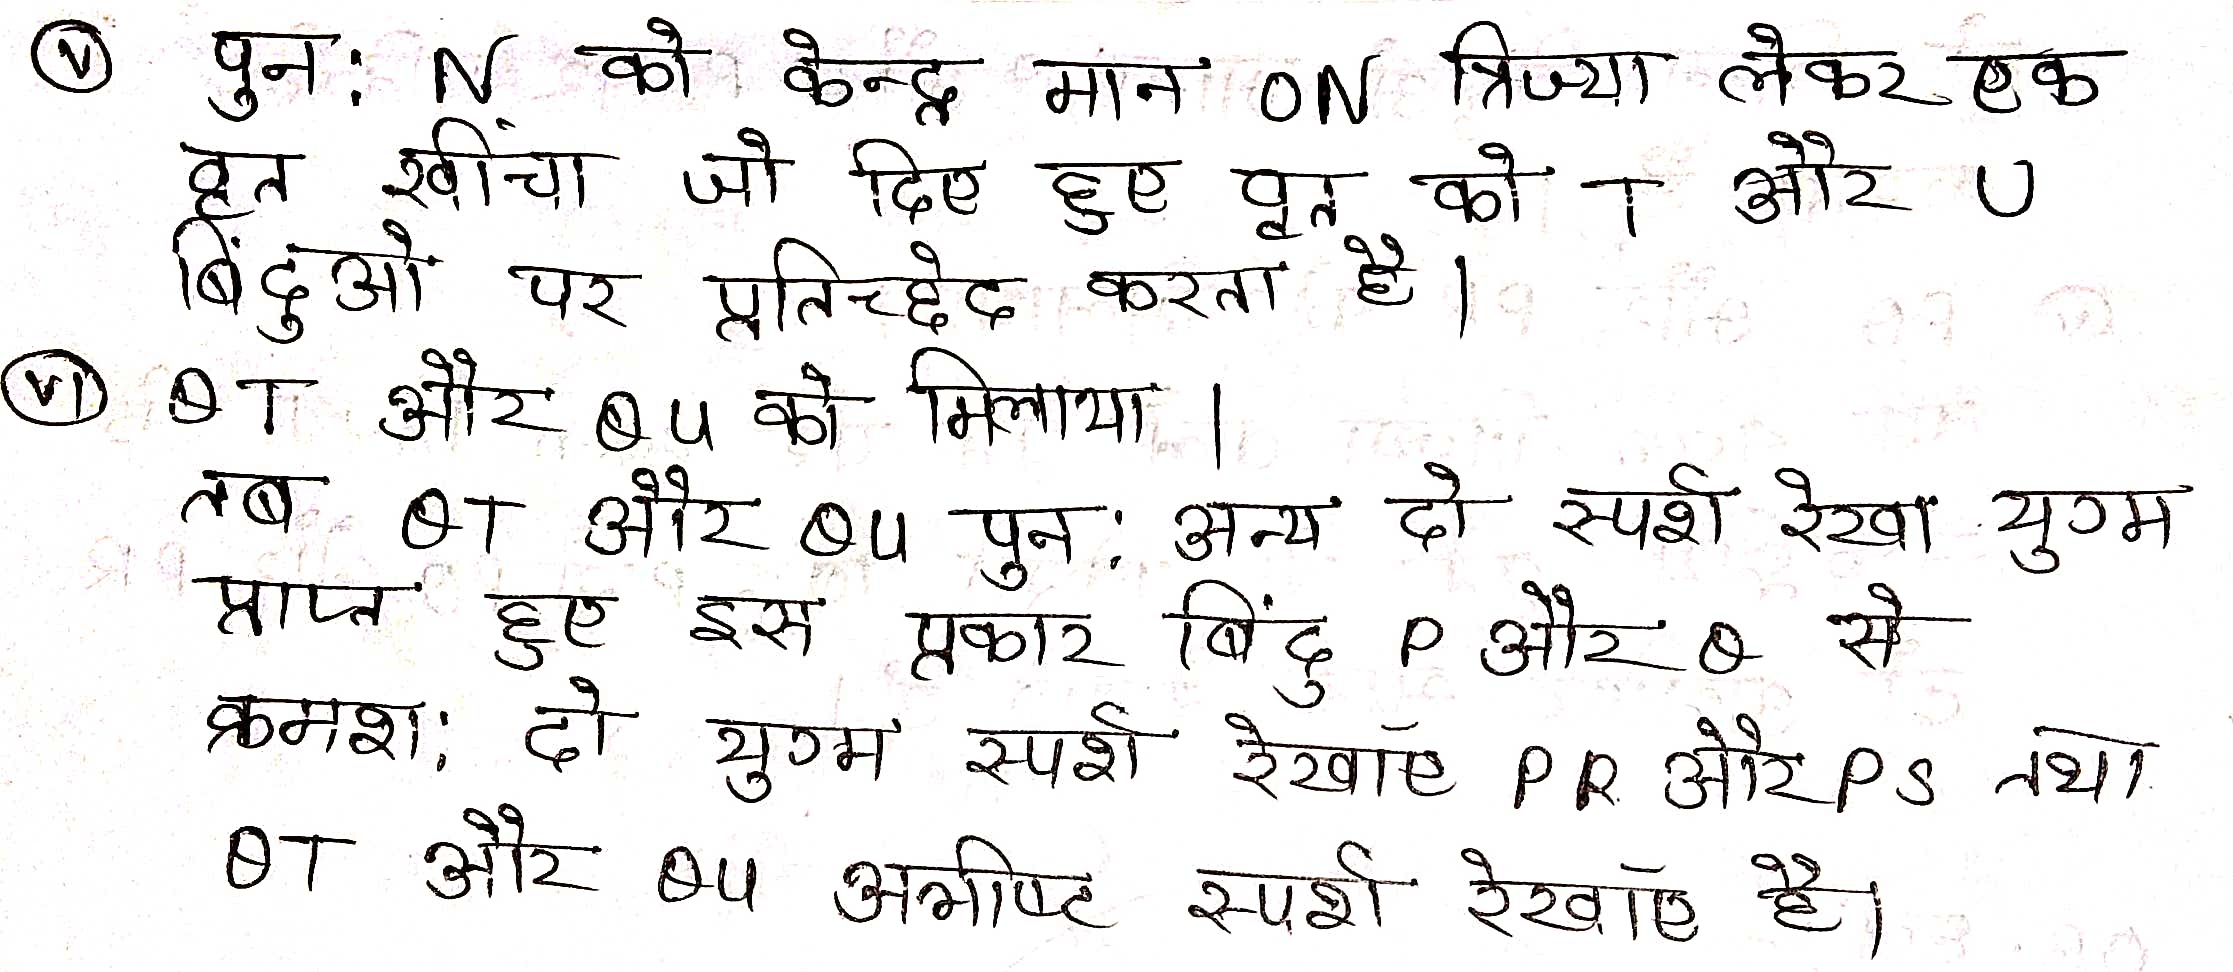 (V) पुन: N को केन्द्र मान ON त्रिज्या लेकर एक
वृत खींचा जो दिए हुए वृत को T और U
बिंदुओ पर प्रतिच्छेद करता है।
(VI) QT और QU को मिलाया।
तब QT और QU पुन: अन्य दो स्पर्श रेखा युग्म
प्राप्त हुए इस प्रकार बिंदु P और Q से
क्रमश: दो युग्म स्पर्श रेखाॅए PR और PS तथा
QT और QU अभीष्ट स्पर्श रेखाॅए है।